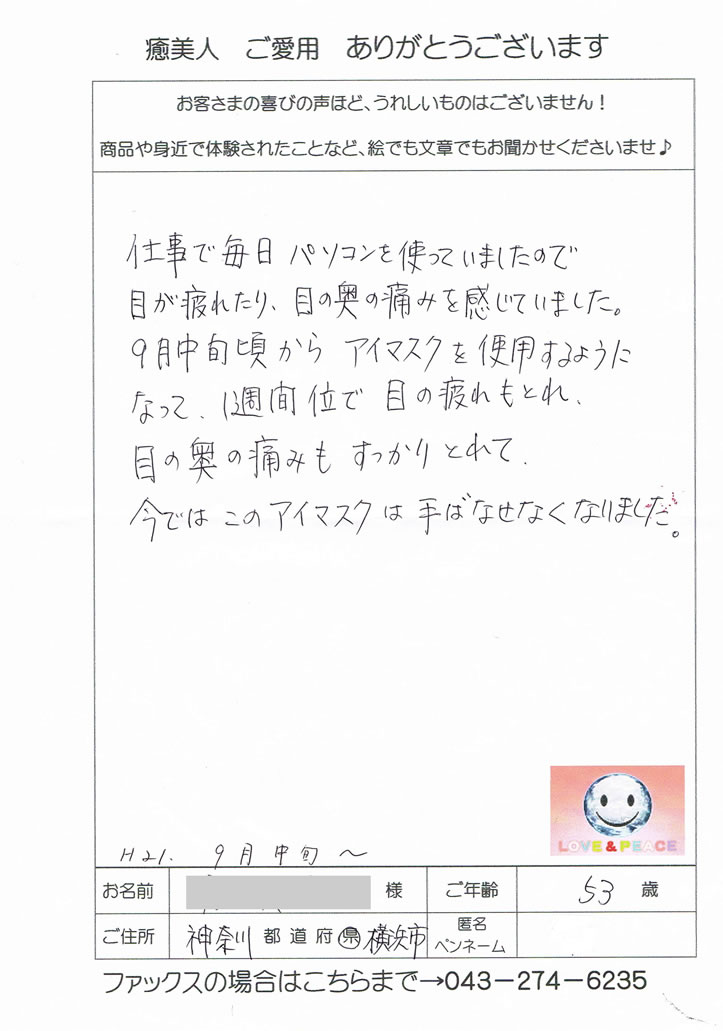 癒美人　ご愛用　ありがとうございます
お客さまの喜びの声ほど、うれしいものはございません！
商品や身近で体験されたことなど、絵でも文章でもお聞かせくださいませ♪
仕事で毎日パソコンを使っていましたので
目が疲れたり、目の奥の痛みを感じていました。
9月中旬頃から アイマスクを使用するように
なって、1週間位で 目の疲れもとれ、
目の奥の痛みも すっかりとれて、
今ではこのアイマスクは手ばなせなくなりました。
LOVE & PEACE
H21. 9月中旬～
お名前 様 ご年齢 53 歳
ご住所 神奈川 都道府県 横浜市 匿名ペンネーム
ファックスの場合はこちらまで→043－274－6235